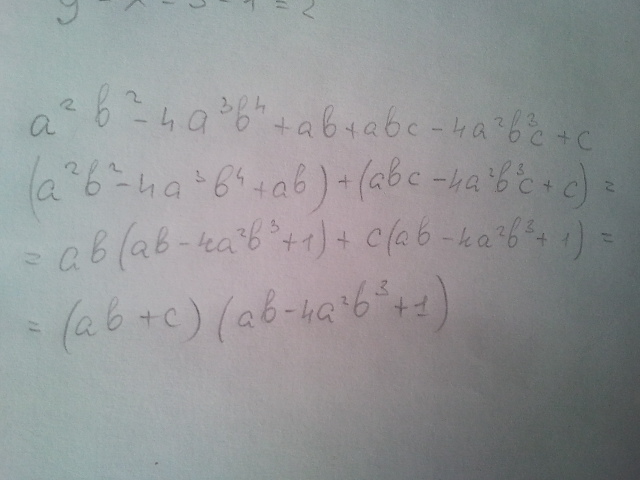 y - x = 3 - 1 = 2
a² b² - 4a³b⁴ + ab + abc - 4a²b³c + c
(a²b² - 4a³b⁴ + ab) + (abc - 4a²b³c + c) =
= ab(ab - 4a²b³ + 1) + c(ab - 4a²b³ + 1) =
= (ab + c) (ab - 4a²b³ + 1)